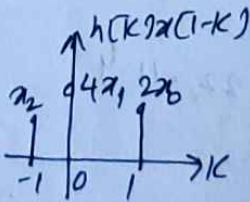 h[K]x[1-K]
x₂ 4x₁ 2x₀
-1 0 1 K